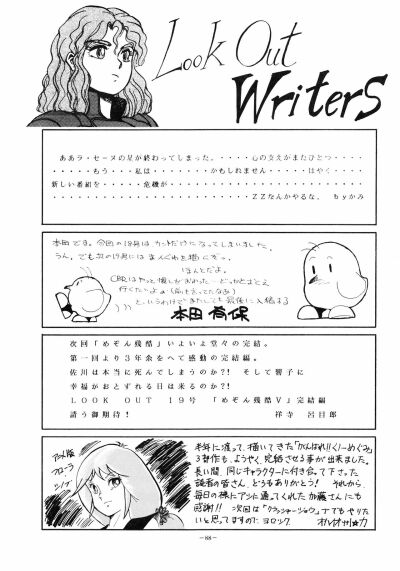 Look Out
Writers
ああラ・セーヌの星が終わってしまった。・・・・・心の支えがまたひとつ・・・・
・・・・・もう・・・私は・・・・・・・・かもしれません・・・・・・はやく・・・・
新しい番組を・・・・・危機が・・・・・・・・・・・・・・・・・・・・・・・・
・・・・・・・・・・・・・・・・・・・・ZZなんかやるな、 byかみ
本田です。今回の18号はカットだけになってしまいました、
うん、でも次の19号にはまんがを描くぞっ
ほんとだよ。
というわけでまたしても最後に入稿する
本田 有保
次回「めぞん残酷」いよいよ堂々の完結。
第一回より3年余をへて感動の完結編。
佐川は本当に死んでしまうのか?! そして響子に
幸福がおとずれる日は来るのか?!
LOOK OUT 19号 「めぞん残酷V」完結編
請う御期待! 祥寺 呂目郎
アニメ版
フローラ
シノブ
半年に渡って、描いてきた「がんばれ!!くりーめぐみ」
る智作も、ようやく完結させる事が出来ました。
長い間、同じキャラクターに付き合って下さった
読者の皆さん、どうもありがとう! それから、
毎日の様にアシに通ってくれた加藤さんにも
感謝!! 次回は「クラッシャージョウ」でもやりた
いと思ってますので、ヨロシク。
—88—